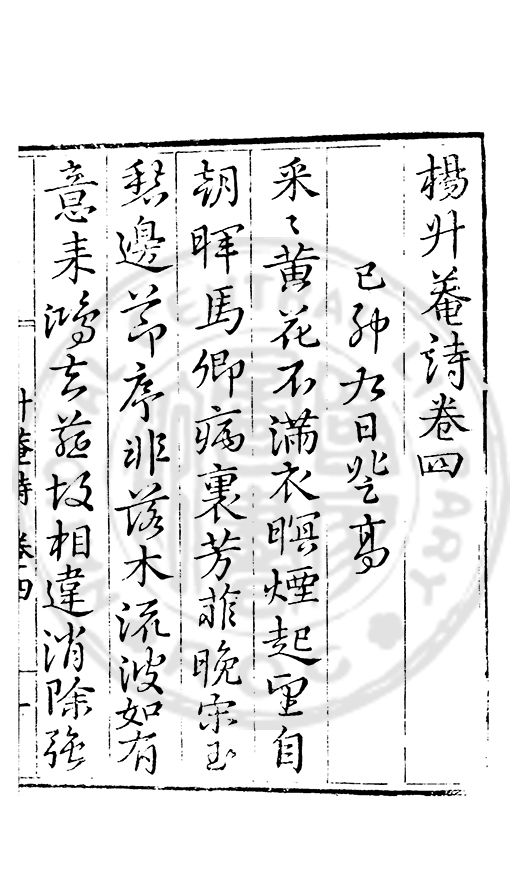 楊升菴詩卷四
己卯九日登高
采〻黃花不滿衣暝煙起望自
朝暉馬卿病裏芳菲晚宋玉
愁邊節序非落木流波如有
意来鴻去燕故相違消除強
升菴詩 卷四 一